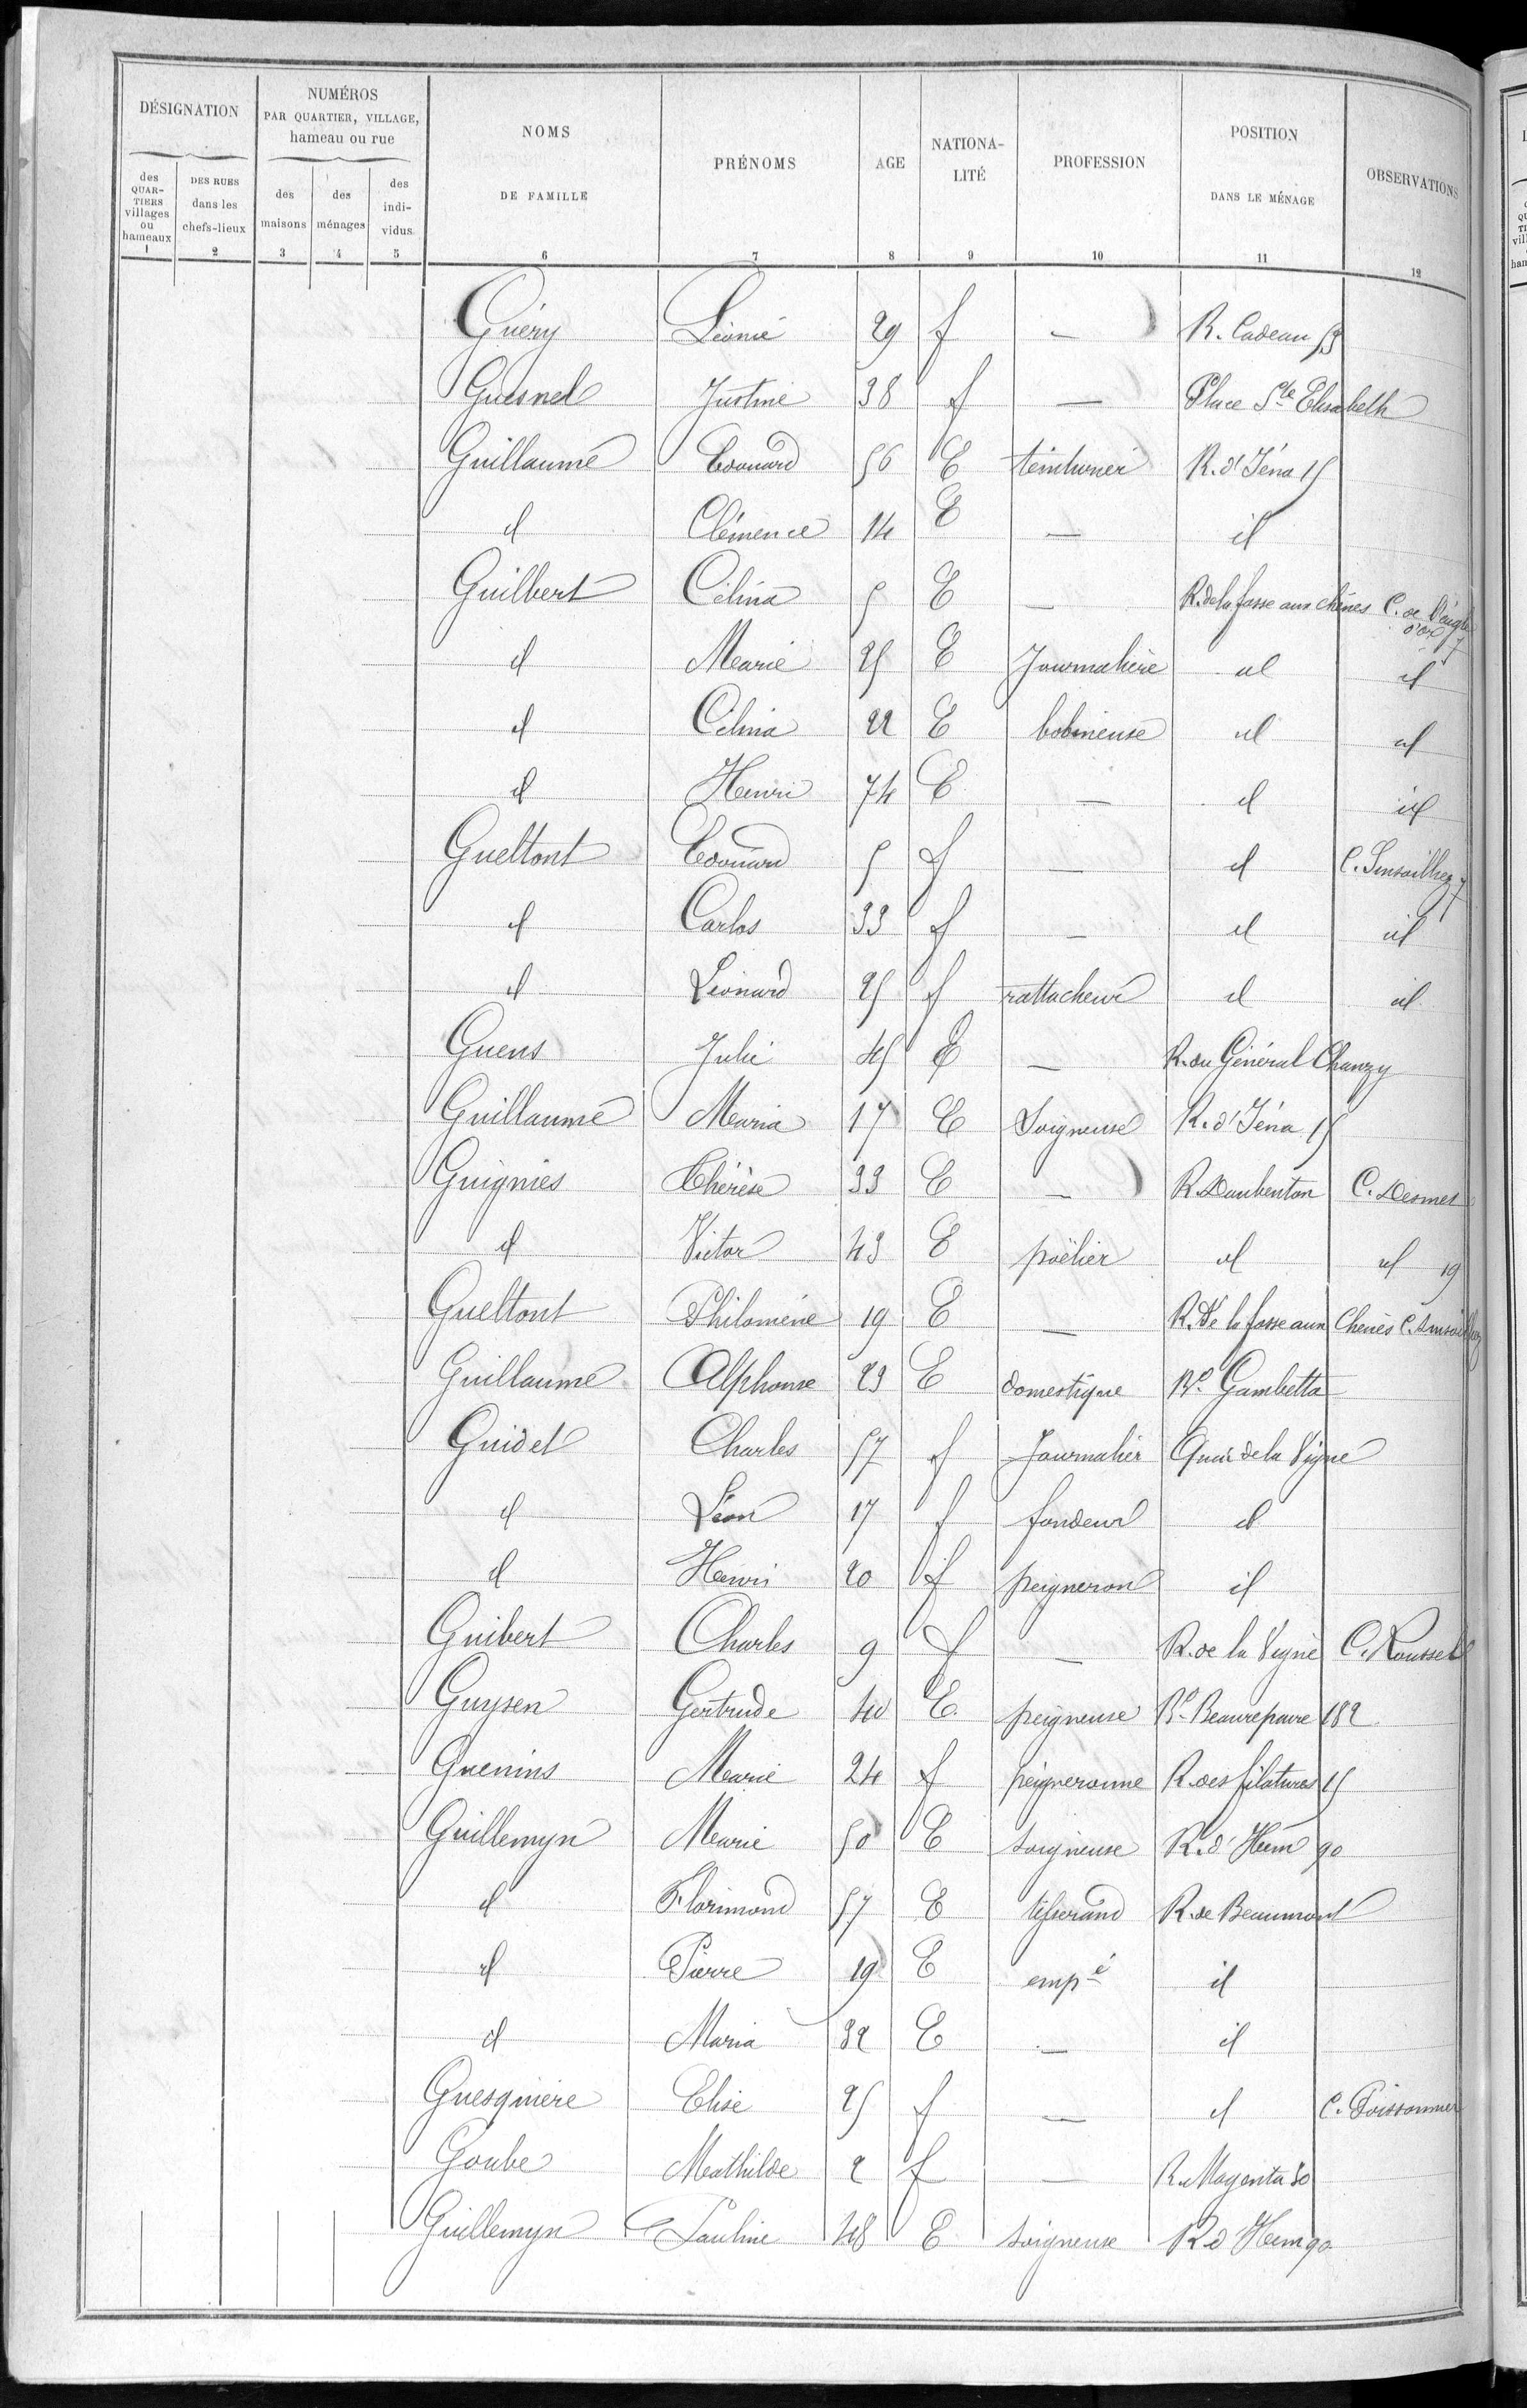 DÉSIGNATION NUMÉROS PAR QUARTIER, VILLAGE, hameau ou rue NOMS DE FAMILLE PRÉNOMS AGE NATIONA-LITÉ PROFESSION POSITION DANS LE MÉNAGE OBSERVATIONS
des QUAR-TIERS villages ou hameaux DES RUES dans les chefs-lieux des maisons des ménages des indi-vidus
1 2 3 4 5 6 7 8 9 10 11 12
Guéry Léonie 29 f — R. Cadeau 53
Guesnel Justine 38 f — Place Ste Elisabeth
Guillaume Edouard 56 E teinturier R. d'Iéna 15
id Clémence 14 E — id
Guilbert Célina 5 E — R. de la fosse aux chênes C. de l'aigle d'or 7
id Marie 25 E Journalière id id
id Célina 22 E bobineuse id id
id Henri 74 E — id id
Gueltont Edouard 5 f — id C. 7
id Carlos 33 f — id id
id Léonard 25 f rattacheur id id
Guens Julie 45 E — R. du Général Chanzy
Guillaume Maria 17 E Soigneuse R. d'Iéna 15
Guignies Thérèse 33 E — R. Daubenton C. Desmet
id Victor 43 E poëlier id id 19
Gueltont Philomène 19 E — R. De la fosse aux Chenes C.
Guillaume Alphonse 23 E domestique Bd Gambetta
Guidet Charles 57 f Journalier Quai de la Vigne
id Léon 17 f fondeur id
id Henri 20 f peigneron id
Guibert Charles 9 f — R. de la Vigne C. Roussel
Guysen Gertrude 40 E peigneuse Bd Beaurepaire 182
Guenins Marie 24 f peigneronne R. des filatures 15
Guillemyn Marie 50 E soigneuse R. d'Hem 90
id Florimond 57 E tisserand R. de Beaumont
id Pierre 19 E empé id
id Maria 32 E — id
Guesquière Elise 25 f — id C. Poissonnier
Goube Mathilde 2 f — R. Magenta 50
Guillemyn Pauline 48 E soigneuse R d'Hem 90